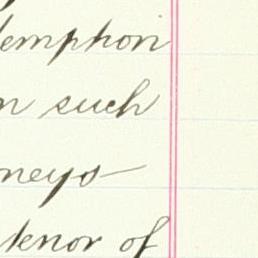 demption
n such
neys
tenor of